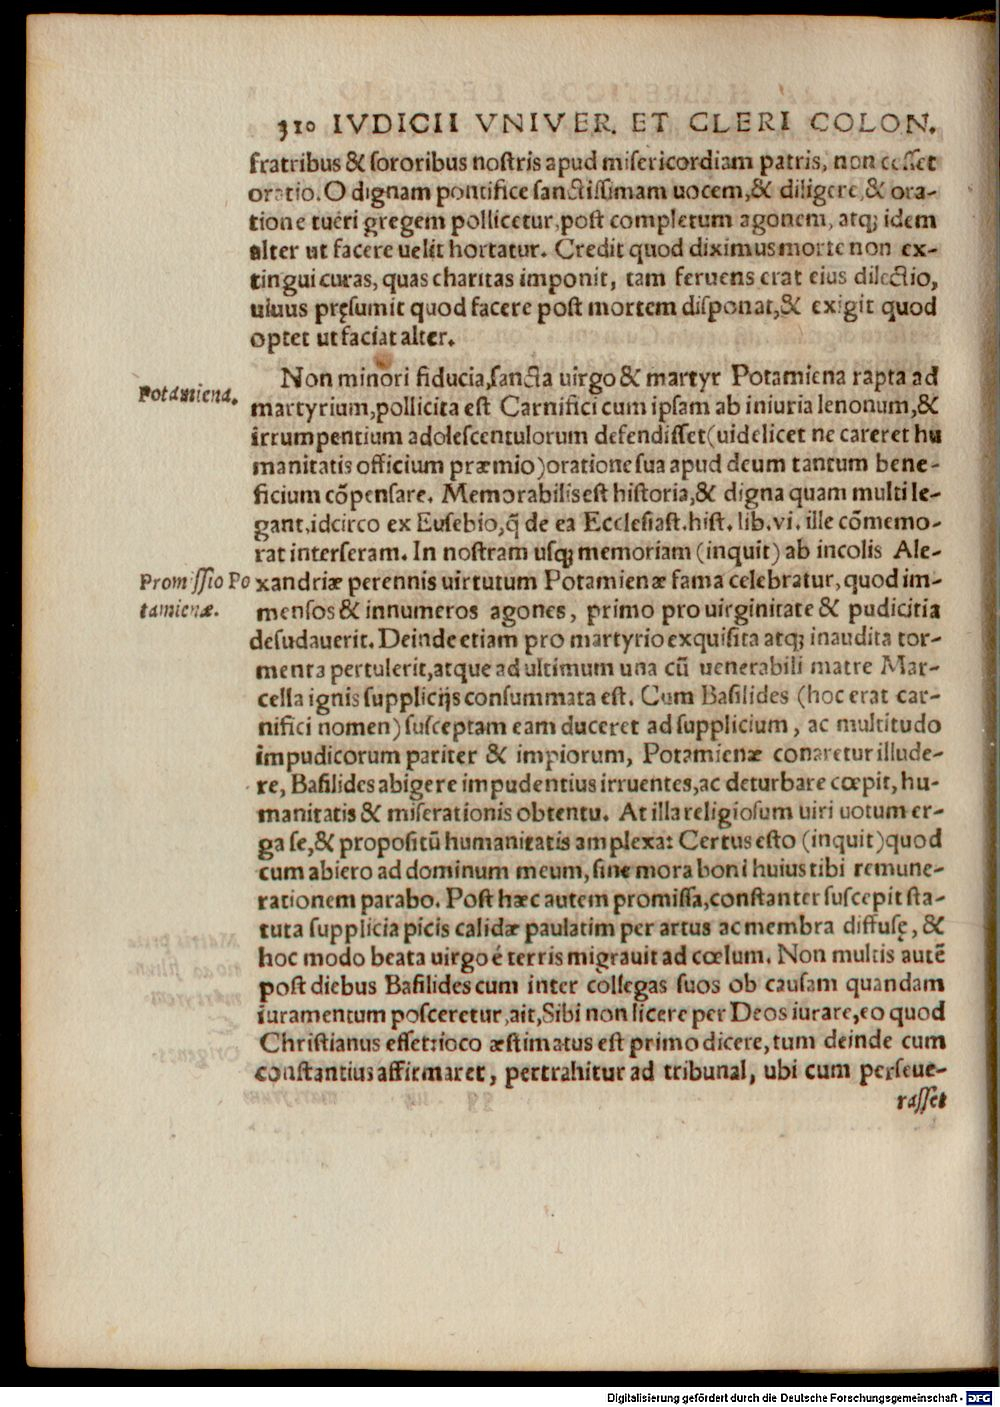 310 IVDICII VNIVER. ET CLERI COLON.
fratribus & sororibus nostris apud misericordiam patris, non cesset
oratio. O dignam pontifice sanctissimam uocem, & diligere, & ora-
tione tueri gregem pollicetur, post completum agonem, atq; idem
alter ut facere uelit hortatur. Credit quod diximus morte non ex-
tingui curas, quas charitas imponit, tam feruens erat eius dilectio,
uiuus pręsumit quod facere post mortem disponat, & exigit quod
optet ut faciat alter.
Potamiena.
Non minori fiducia, sancta uirgo & martyr Potamiena rapta ad
martyrium, pollicita est Carnifici cum ipsam ab iniuria lenonum, &
irrumpentium adolescentulorum defendisset (uidelicet ne careret hu
manitatis officium præmio) oratione sua apud deum tantum bene-
ficium cōpensare. Memorabilis est historia, & digna quam multi le-
gant, idcirco ex Eusebio, q̃ de ea Ecclesiast. hist. lib. vi. ille cōmemo-
rat interseram. In nostram usq; memoriam (inquit) ab incolis Ale-
Promissio Po
tamienæ.
xandriæ perennis uirtutum Potamienæ fama celebratur, quod im-
mensos & innumeros agones, primo pro uirginitate & pudicitia
desudauerit. Deinde etiam pro martyrio exquisita atq; inaudita tor-
menta pertulerit, atque ad ultimum una cū uenerabili matre Mar-
cella ignis supplicijs consummata est. Cum Basilides (hoc erat car-
nifici nomen) susceptam eam duceret ad supplicium, ac multitudo
impudicorum pariter & impiorum, Potamienæ conaretur illude-
re, Basilides abigere impudentius irruentes, ac deturbare cœpit, hu-
manitatis & miserationis obtentu. At illa religiosum uiri uotum er-
ga se, & propositū humanitatis amplexa: Certus esto (inquit) quod
cum abiero ad dominum meum, sine mora boni huius tibi remune-
rationem parabo. Post hæc autem promissa, constanter suscepit sta-
tuta supplicia picis calidæ paulatim per artus ac membra diffusę, &
hoc modo beata uirgo é terris migrauit ad cœlum. Non multis autē
post diebus Basilides cum inter collegas suos ob causam quandam
iuramentum posceretur, ait, Sibi non licere per Deos iurare, eo quod
Christianus esset: ioco æstimatus est primo dicere, tum deinde cum
constantius affirmaret, pertrahitur ad tribunal, ubi cum perseue-
rasset
Digitalisierung gefördert durch die Deutsche Forschungsgemeinschaft - DFG